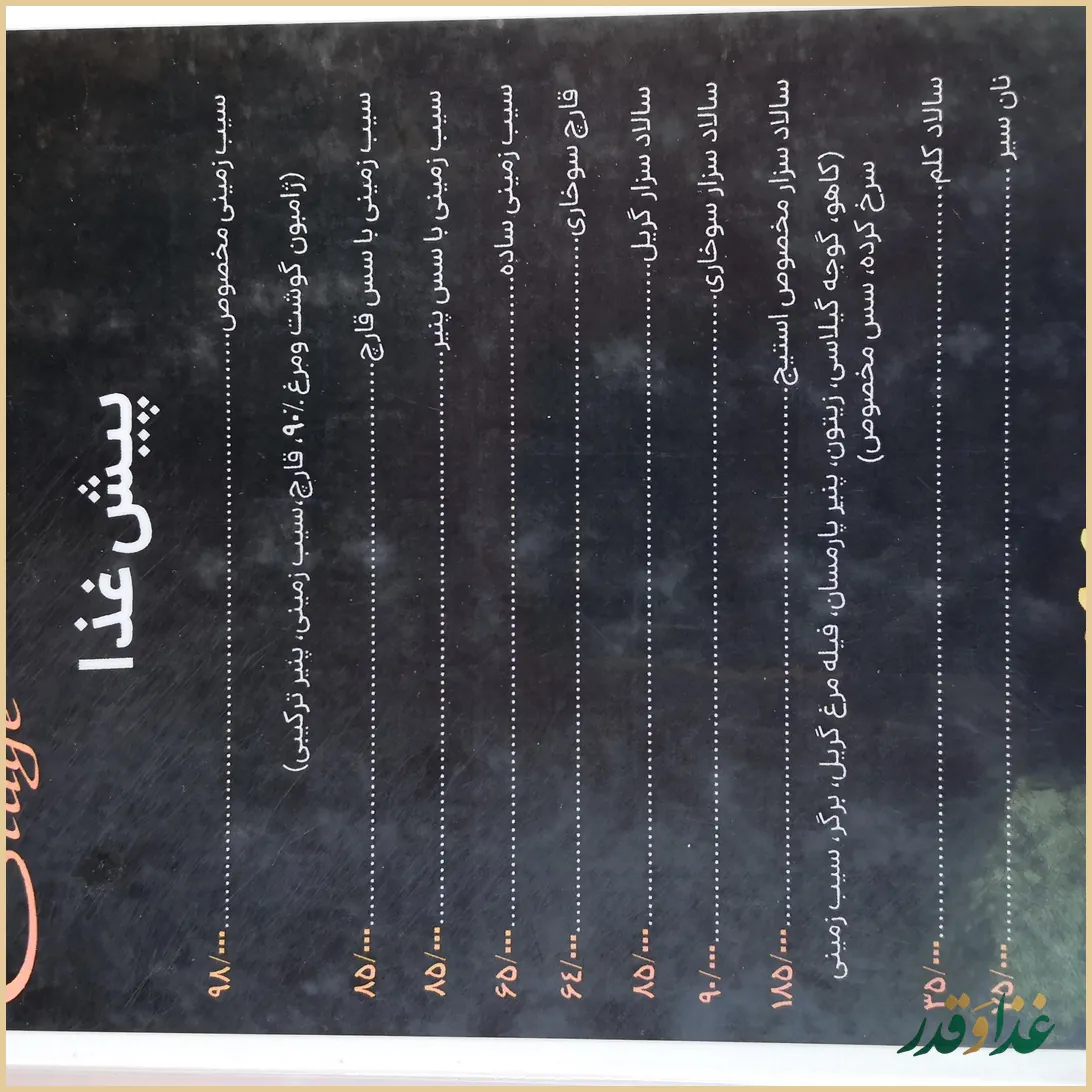 پیش غذا
سیب زمینی مخصوص ۹۸/۰۰۰
(ژامبون گوشت ومرغ ۹۰٪، قارچ،سیب زمینی، پنیر ترکیبی)
سیب زمینی با سس قارچ ۸۵/۰۰۰
سیب زمینی با سس پنیر ۸۵/۰۰۰
سیب زمینی ساده ۶۵/۰۰۰
قارچ سوخاری ۶۴/۰۰۰
سالاد سزار گریل ۸۵/۰۰۰
سالاد سزار سوخاری ۹۰/۰۰۰
سالاد سزار مخصوص استیج ۱۸۵/۰۰۰
(کاهو، گوجه گیلاسی، زیتون، پنیر پارمسان، فیله مرغ گریل، برگر، سیب زمینی
سرخ کرده، سس مخصوص)
سالاد کلم ۳۵/۰۰۰
نان سیر
غذا و قدر